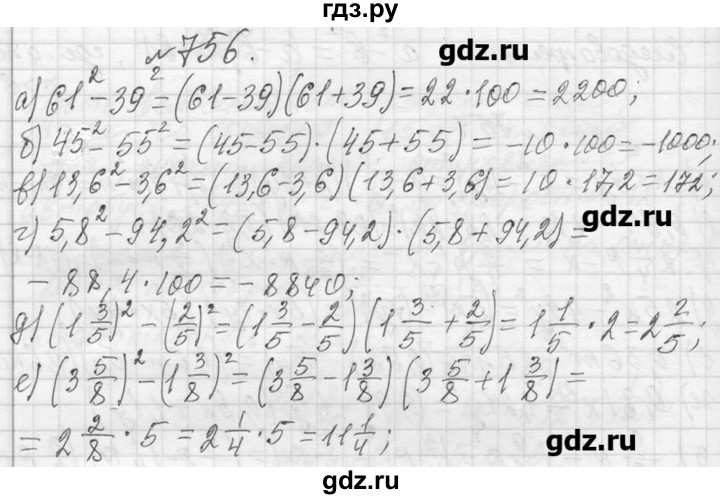 гдз.ру
№756.
gdz.ru
а) 61² - 39² = (61-39)(61+39) = 22·100 = 2200;
б) 45² - 55² = (45-55)·(45+55) = -10·100 = -1000;
в) 13,6² - 3,6² = (13,6-3,6)(13,6+3,6) = 10·17,2 = 172;
gdz.ru
г) 5,8² - 94,2² = (5,8-94,2)·(5,8+94,2) =
-88,4·100 = -8840;
д) (1 3/5)² - (2/5)² = (1 3/5 - 2/5)(1 3/5 + 2/5) = 1 1/5 · 2 = 2 2/5;
е) (3 5/8)² - (1 3/8)² = (3 5/8 - 1 3/8)(3 5/8 + 1 3/8) =
= 2 2/8 · 5 = 2 1/4 · 5 = 11 1/4;
gdz.ru
gdz.ru